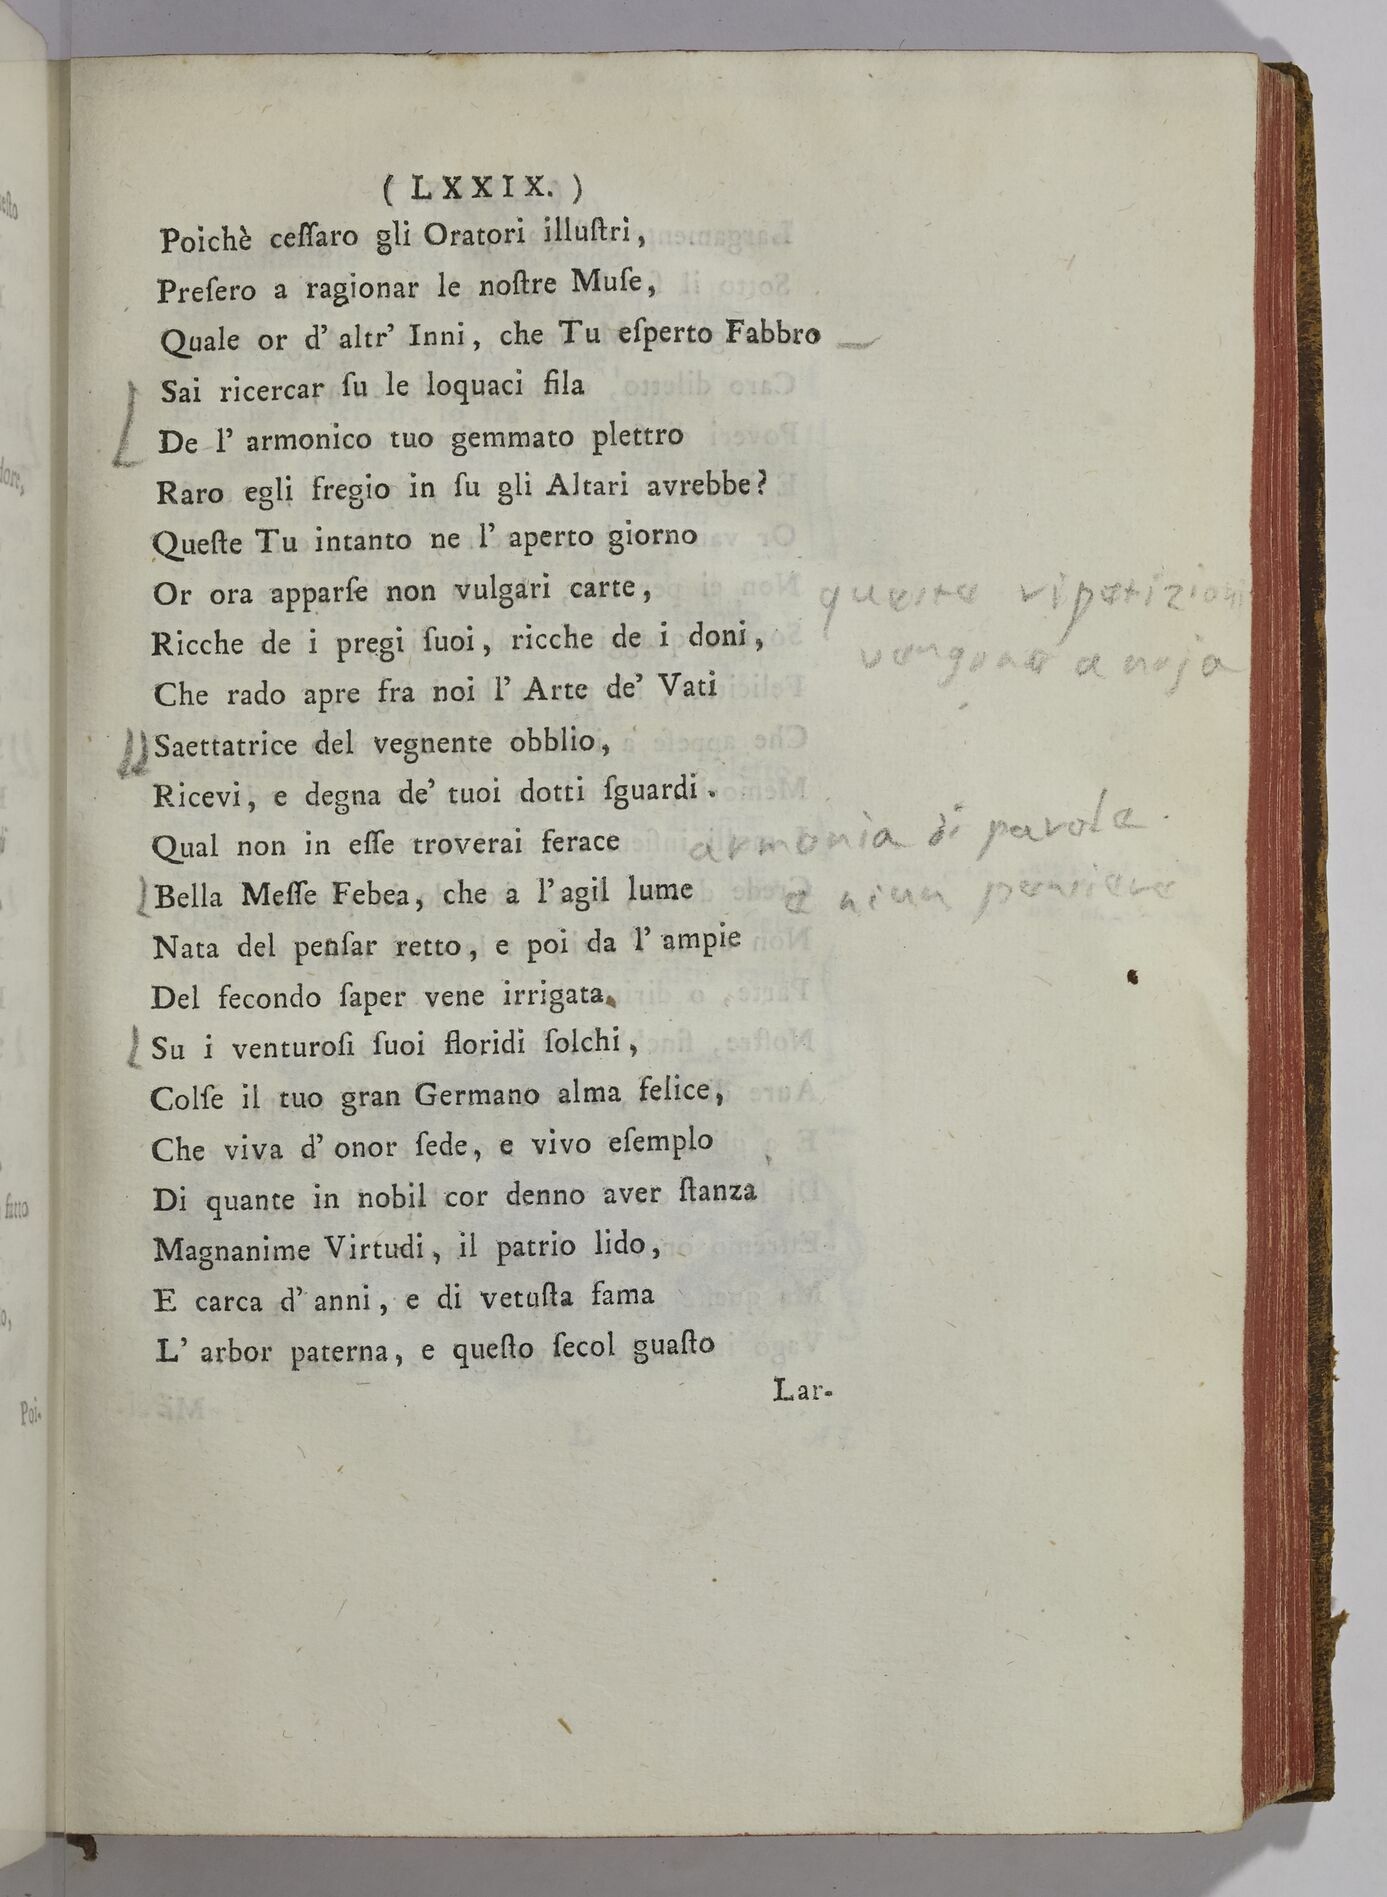 ( LXXIX. )
Poichè ceſſaro gli Oratori illuſtri,
Preſero a ragionar le noſtre Muſe,
Quale or d' altr' Inni, che Tu eſperto Fabbro
Sai ricercar ſu le loquaci fila
De l' armonico tuo gemmato plettro
Raro egli fregio in ſu gli Altari avrebbe?
Queſte Tu intanto ne l' aperto giorno
Or ora apparſe non vulgari carte,
queste ripetizioni
Ricche de i pregi ſuoi, ricche de i doni,
vengono a noja
Che rado apre fra noi l' Arte de' Vati
Saettatrice del vegnente obblio,
Ricevi, e degna de' tuoi dotti ſguardi.
Qual non in eſſe troverai ferace
armonia di parole
Bella Meſſe Febea, che a l'agil lume
e niun pensiere
Nata del penſar retto, e poi da l' ampie
Del fecondo ſaper vene irrigata.
Su i venturoſi ſuoi floridi ſolchi,
Colſe il tuo gran Germano alma felice,
Che viva d' onor ſede, e vivo eſemplo
Di quante in nobil cor denno aver ſtanza
Magnanime Virtudi, il patrio lido,
E carca d' anni, e di vetuſta fama
L' arbor paterna, e queſto ſecol guaſto
Lar-
Poi-